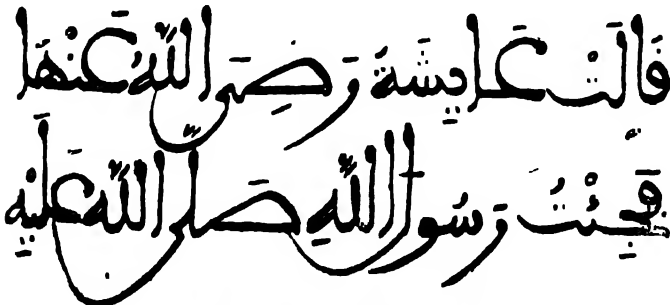 قَالَتْ عَايِشَةُ رَضِىَ اللّٰهُ عَنْهَا
فَجِئْتُ رَسُولَ اللّٰهِ صَلَّى اللّٰهُ عَلَيْهِ